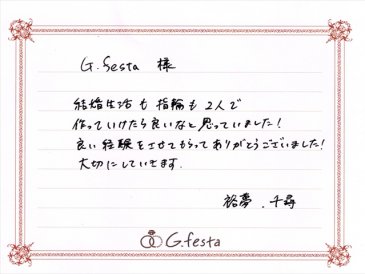 G.festa 様
結婚生活も指輪も2人で
作っていけたら良いなと思っていました!
良い経験をさせてもらってありがとうございました!
大切にしていきます.
裕夢.千尋
G.festa